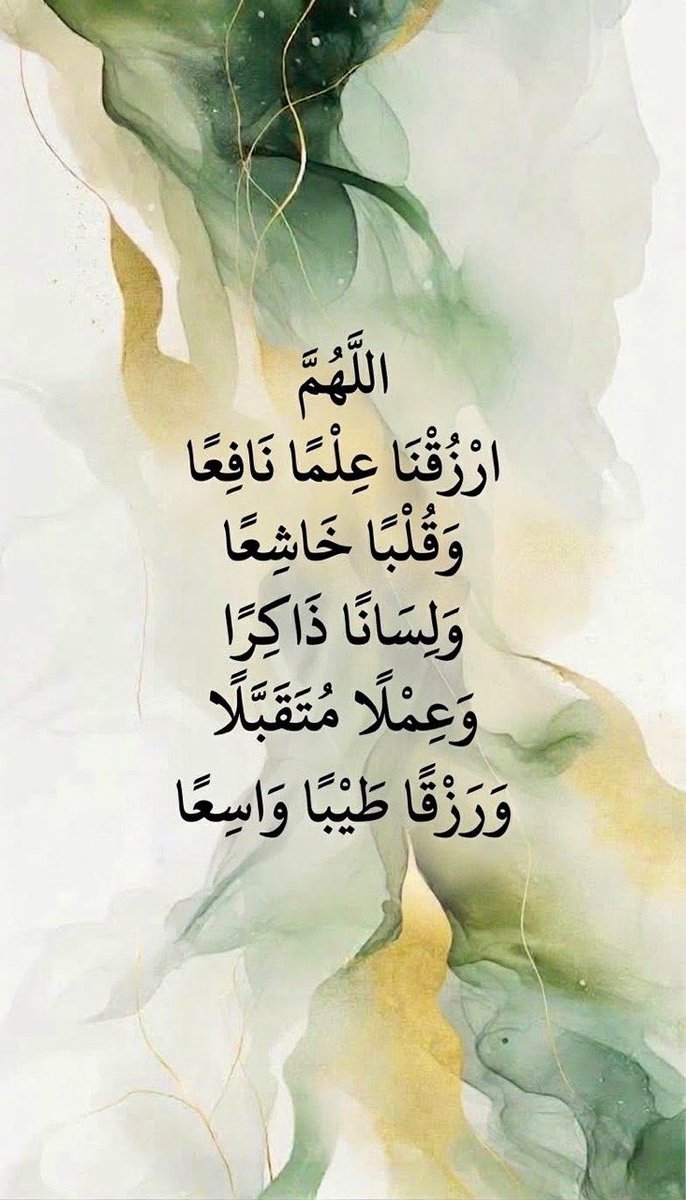 اللَّهُمَّ
ارْزُقْنَا عِلْمًا نَافِعًا
وَقُلْبًا خَاشِعًا
وَلِسَانًا ذَاكِرًا
وَعِمْلًا مُتَقَبَّلًا
وَرَزْقًا طَيْبًا وَاسِعًا